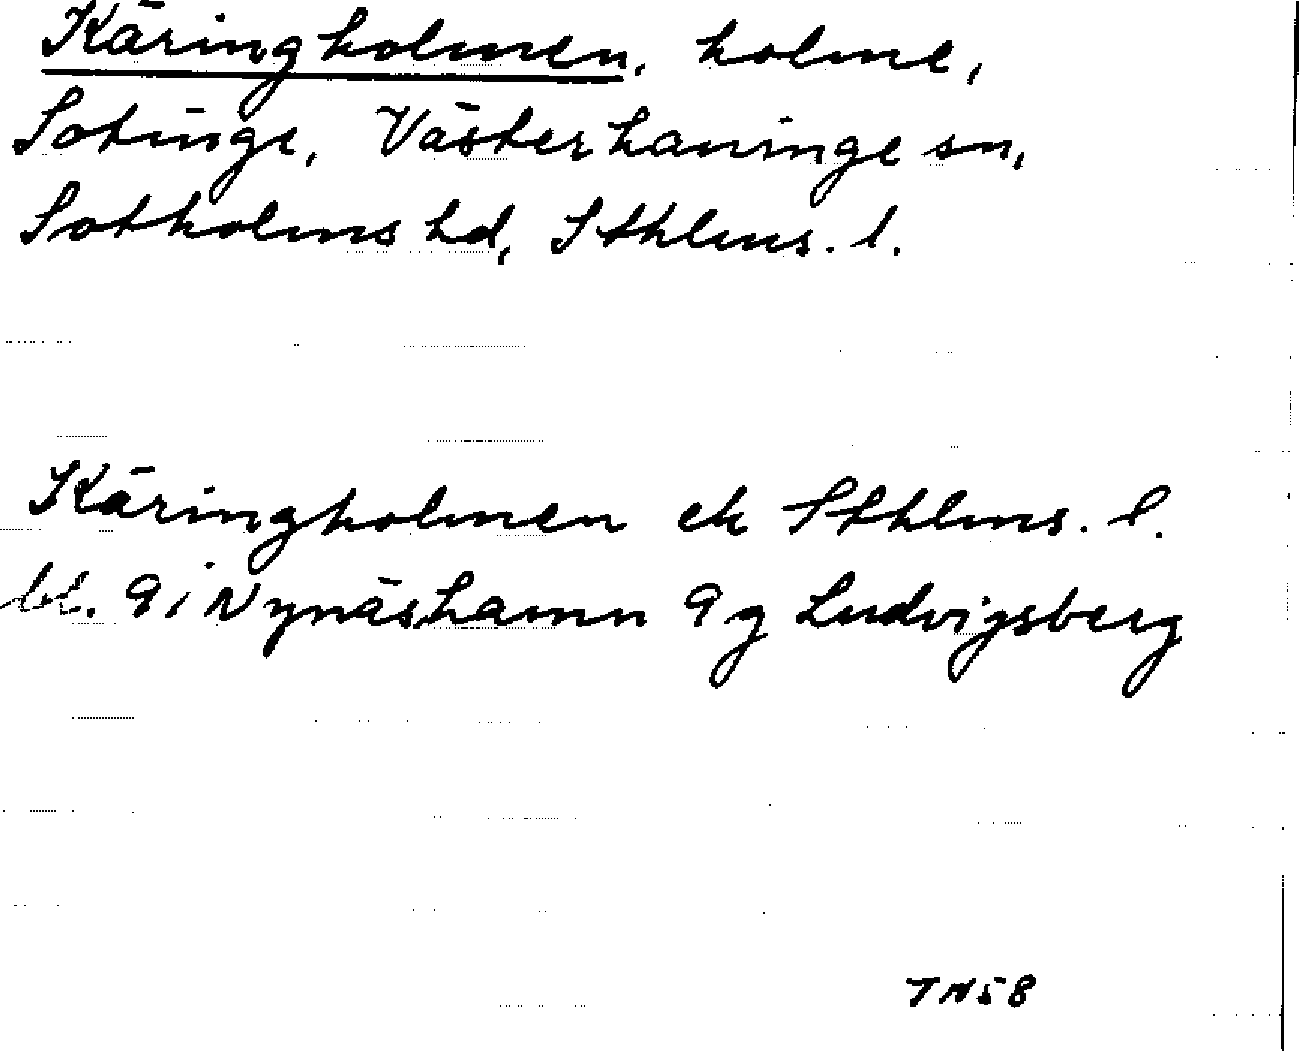 Käringholmen, holme,
Sotinge, Västerhaninge sn,
Sotholms hd, Sthlms. l.
Käringholmen ek Sthlms. l.
bl. 9i Nynäshamn 9g Ludvigsberg
TN58